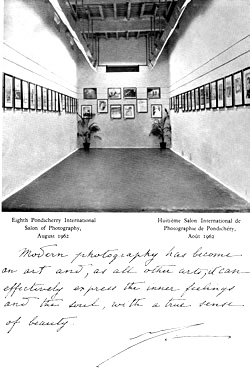 Eighth Pondicherry International
Salon of Photography,
August 1962
Huitième Salon International de
Photographie de Pondichéry,
Août 1962
Modern photography has become
an art and, as all other arts, it can
effectively express the inner feelings
and the soul, with a true sense
of beauty.